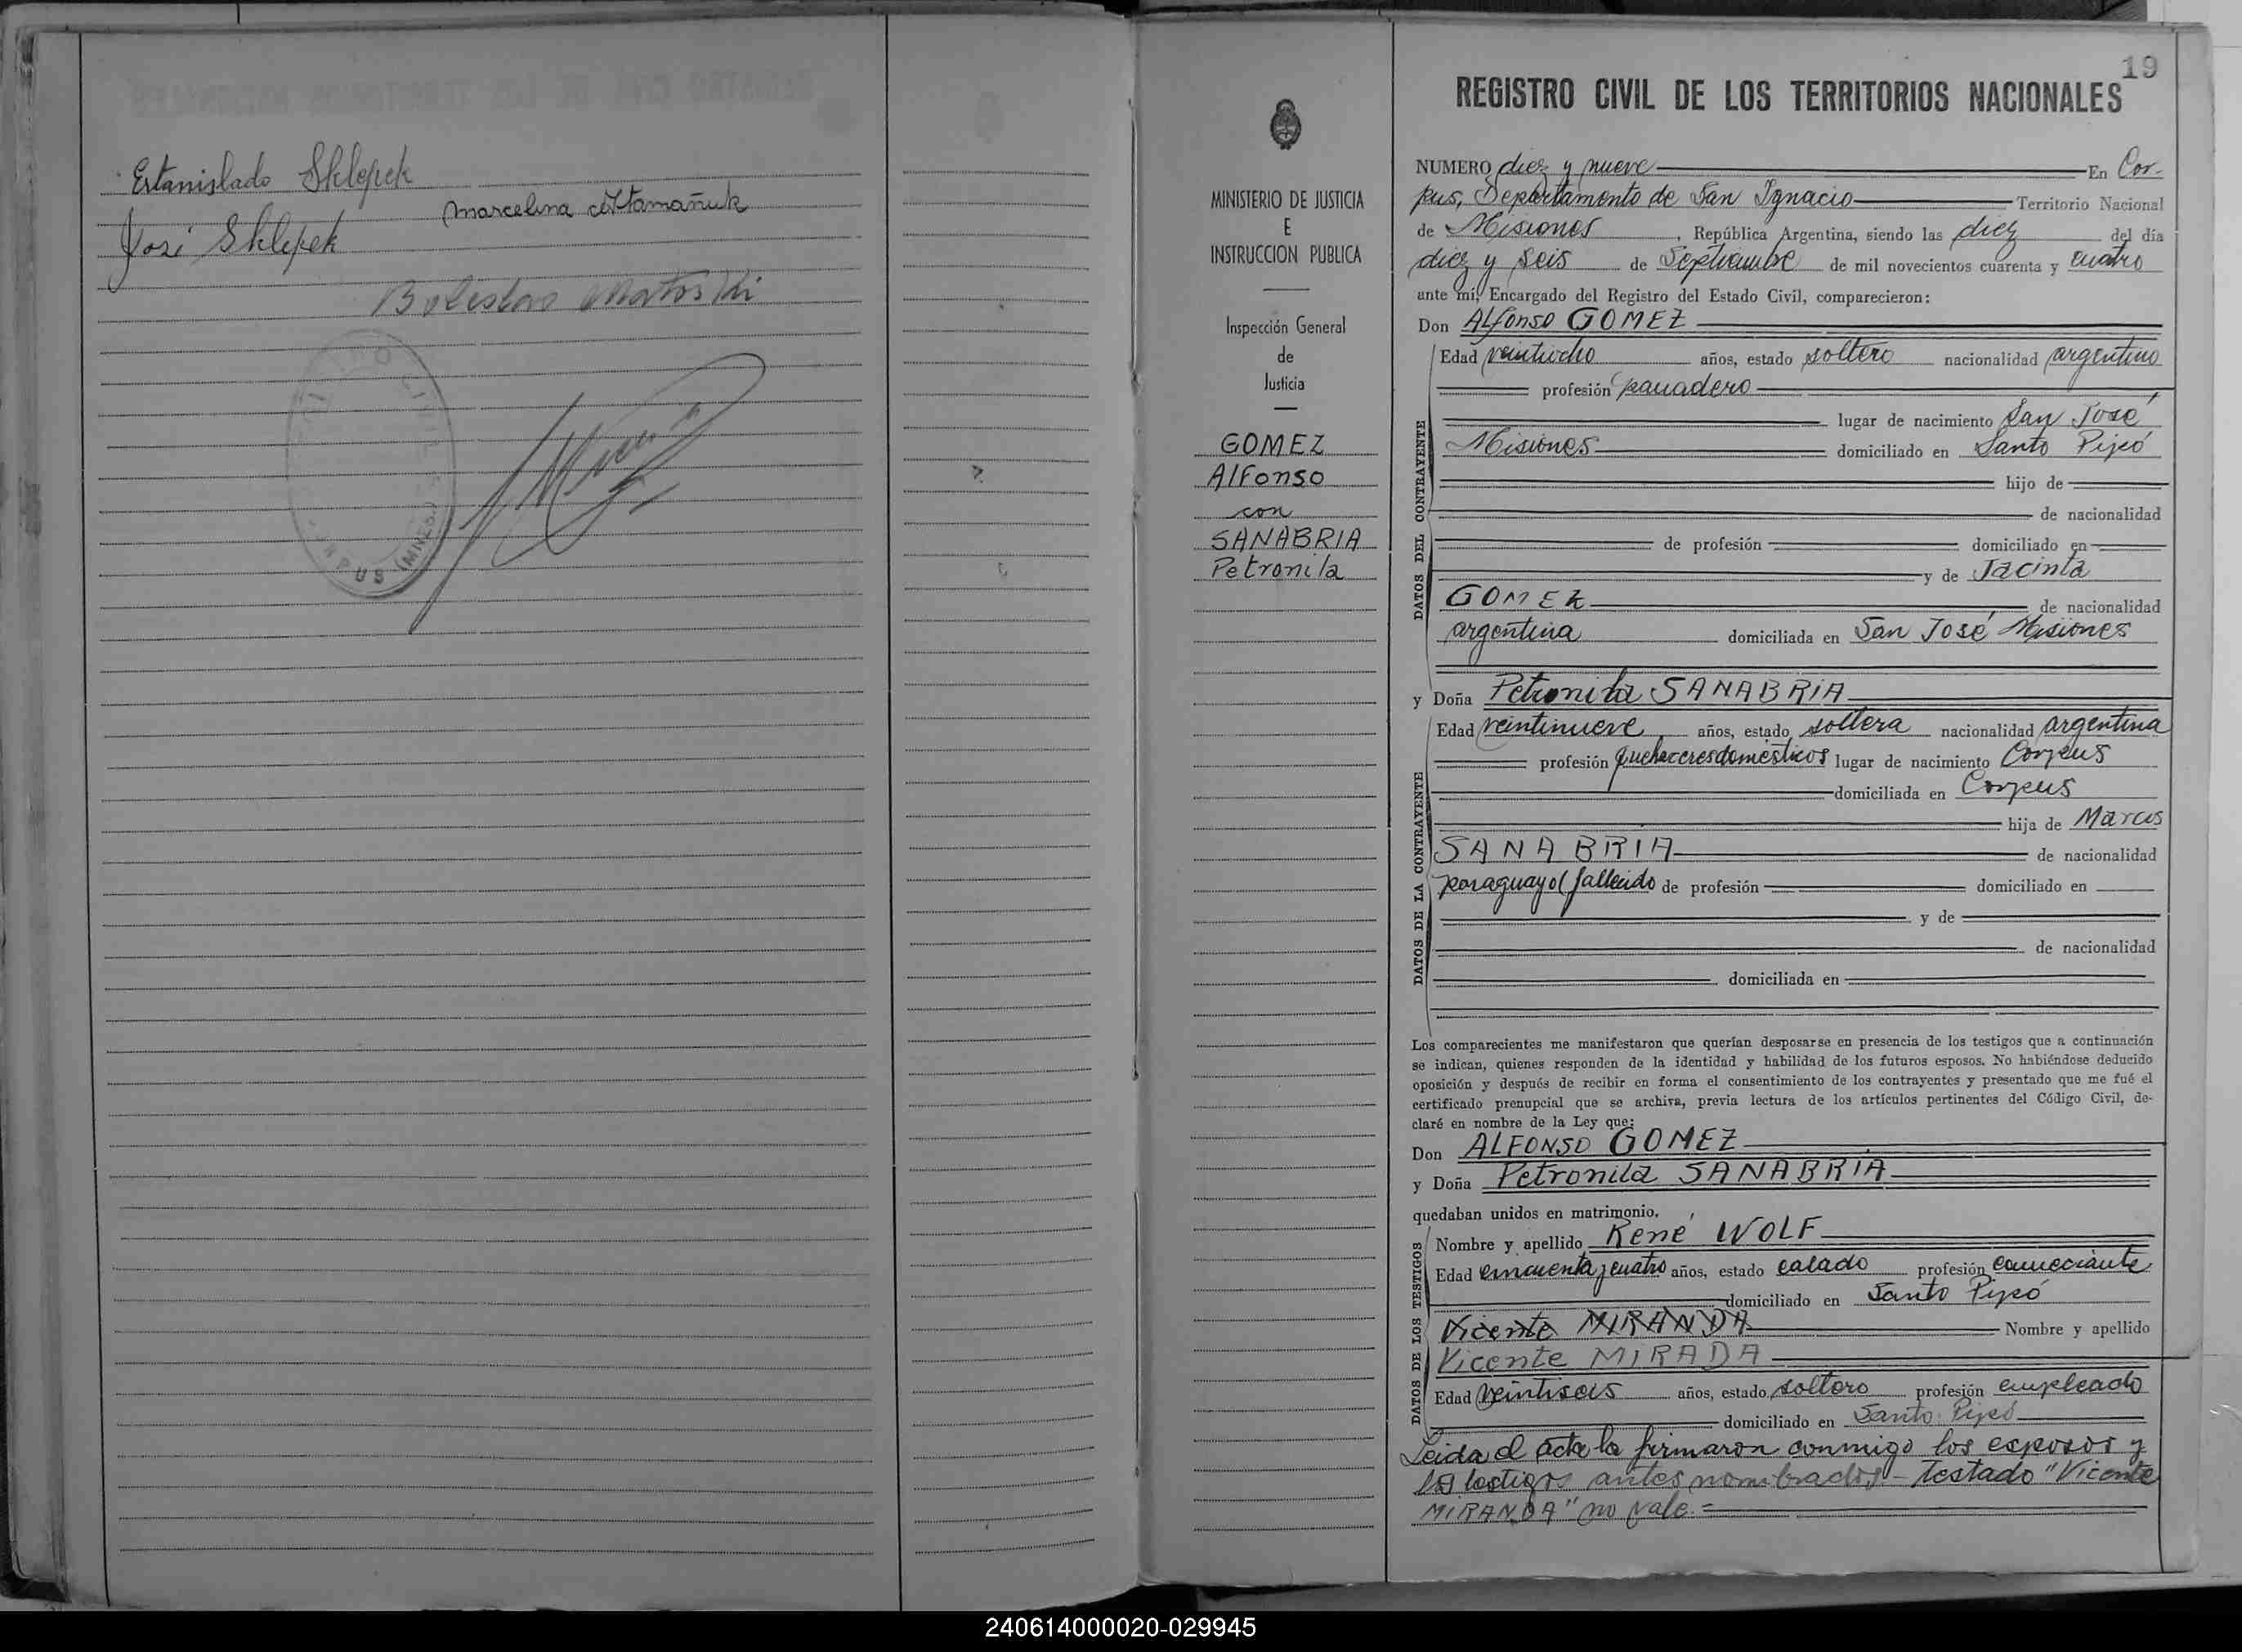 Estanislado Sklepek
Marcelina
José Sklepek
Boleslao
CORPUS (MNES.)
MINISTERIO DE JUSTICIA
E
INSTRUCCION PUBLICA
Inspección General
de
Justicia
GOMEZ
Alfonso
con
SANABRIA
Petronila
19
REGISTRO CIVIL DE LOS TERRITORIOS NACIONALES
NUMERO diez y nueve En Cor-
pus, Departamento de San Ignacio Territorio Nacional
de Misiones, República Argentina, siendo las diez del día
diez y seis de Septiembre de mil novecientos cuarenta y cuatro
ante mí, Encargado del Registro del Estado Civil, comparecieron:
Don Alfonso GOMEZ
DATOS DEL CONTRAYENTE
Edad veintiocho años, estado soltero nacionalidad argentino
profesión panadero
lugar de nacimiento San José
Misiones domiciliado en Santo Pipó
hijo de
de nacionalidad
de profesión domiciliado en
y de Jacinta
GOMEZ de nacionalidad
argentina domiciliada en San José Misiones
y Doña Petronila SANABRIA
DATOS DE LA CONTRAYENTE
Edad veintinueve años, estado soltera nacionalidad argentina
profesión quehaceres domésticos lugar de nacimiento Corpus
domiciliada en Corpus
hija de Marcos
SANABRIA de nacionalidad
paraguayo (fallecido de profesión domiciliado en
y de
de nacionalidad
domiciliada en
Los comparecientes me manifestaron que querían desposarse en presencia de los testigos que a continuación
se indican, quienes responden de la identidad y habilidad de los futuros esposos. No habiéndose deducido
oposición y después de recibir en forma el consentimiento de los contrayentes y presentado que me fué el
certificado prenupcial que se archiva, previa lectura de los artículos pertinentes del Código Civil, de-
claré en nombre de la Ley que:
Don ALFONSO GOMEZ
y Doña Petronila SANABRIA
quedaban unidos en matrimonio.
DATOS DE LOS TESTIGOS
Nombre y apellido René WOLF
Edad cincuenta y cuatro años, estado casado profesión comerciante
domiciliado en Santo Pipó
Vicente MIRANDA Nombre y apellido
Vicente MIRADA
Edad veintiseis años, estado soltero profesión empleado
domiciliado en Santo Pipó
Leida el acta la firmaron conmigo los esposos y
los testigos antes nombrados - Testado "Vicente
MIRANDA" no vale.=
240614000020-029945